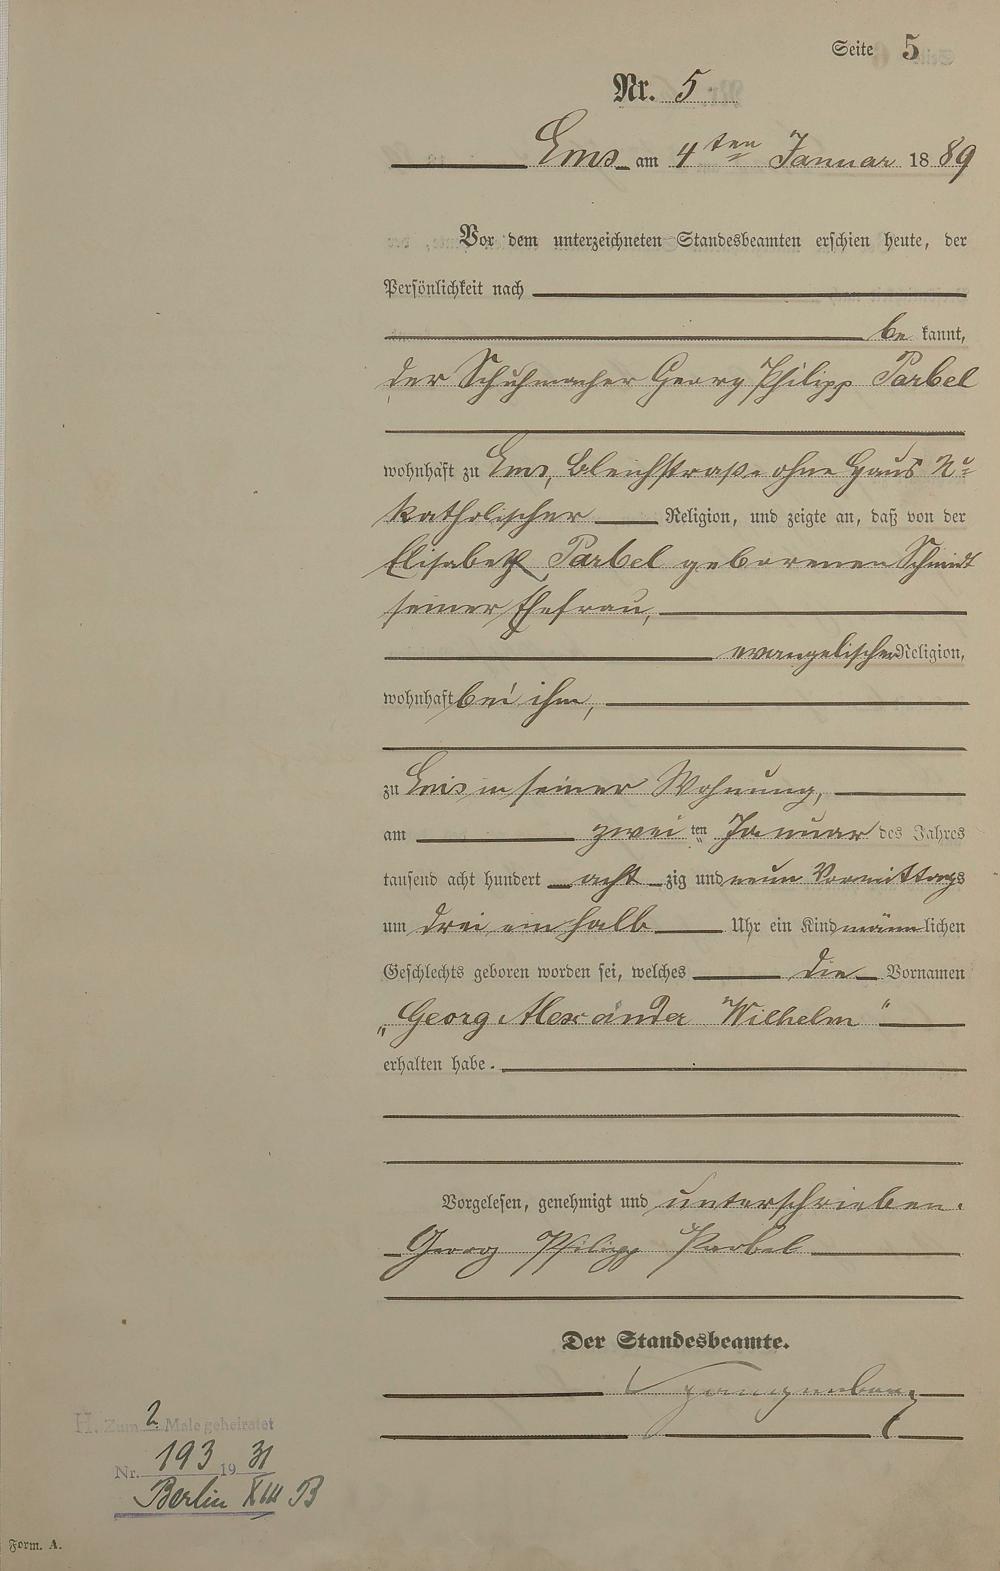 Seite 5
Nr. 5
Ems am 4ten Januar 1889
Vor dem unterzeichneten Standesbeamten erschien heute, der
Persönlichkeit nach
be kannt,
der Schuhmacher Georg Philipp Parbel
wohnhaft zu Ems, Bleichstraße ohne Haus Nr
katholischer Religion, und zeigte an, daß von der
Elisabeth Parbel geborenen Schmidt
seiner Ehefrau,
evangelischer Religion,
wohnhaft bei ihm,
zu Ems in seiner Wohnung,
am zwei ten Januar des Jahres
tausend acht hundert acht zig und neun Vormittags
um drei ein halb Uhr ein Kind männlichen
Geschlechts geboren worden sei, welches die Vornamen
„Georg Alexander Wilhelm“
erhalten habe.
Vorgelesen, genehmigt und unterschrieben.
Georg Philipp Parbel
Der Standesbeamte.
H. Zum 2. Male geheiratet
Nr. 193 1931
Berlin XIII B
Form. A.